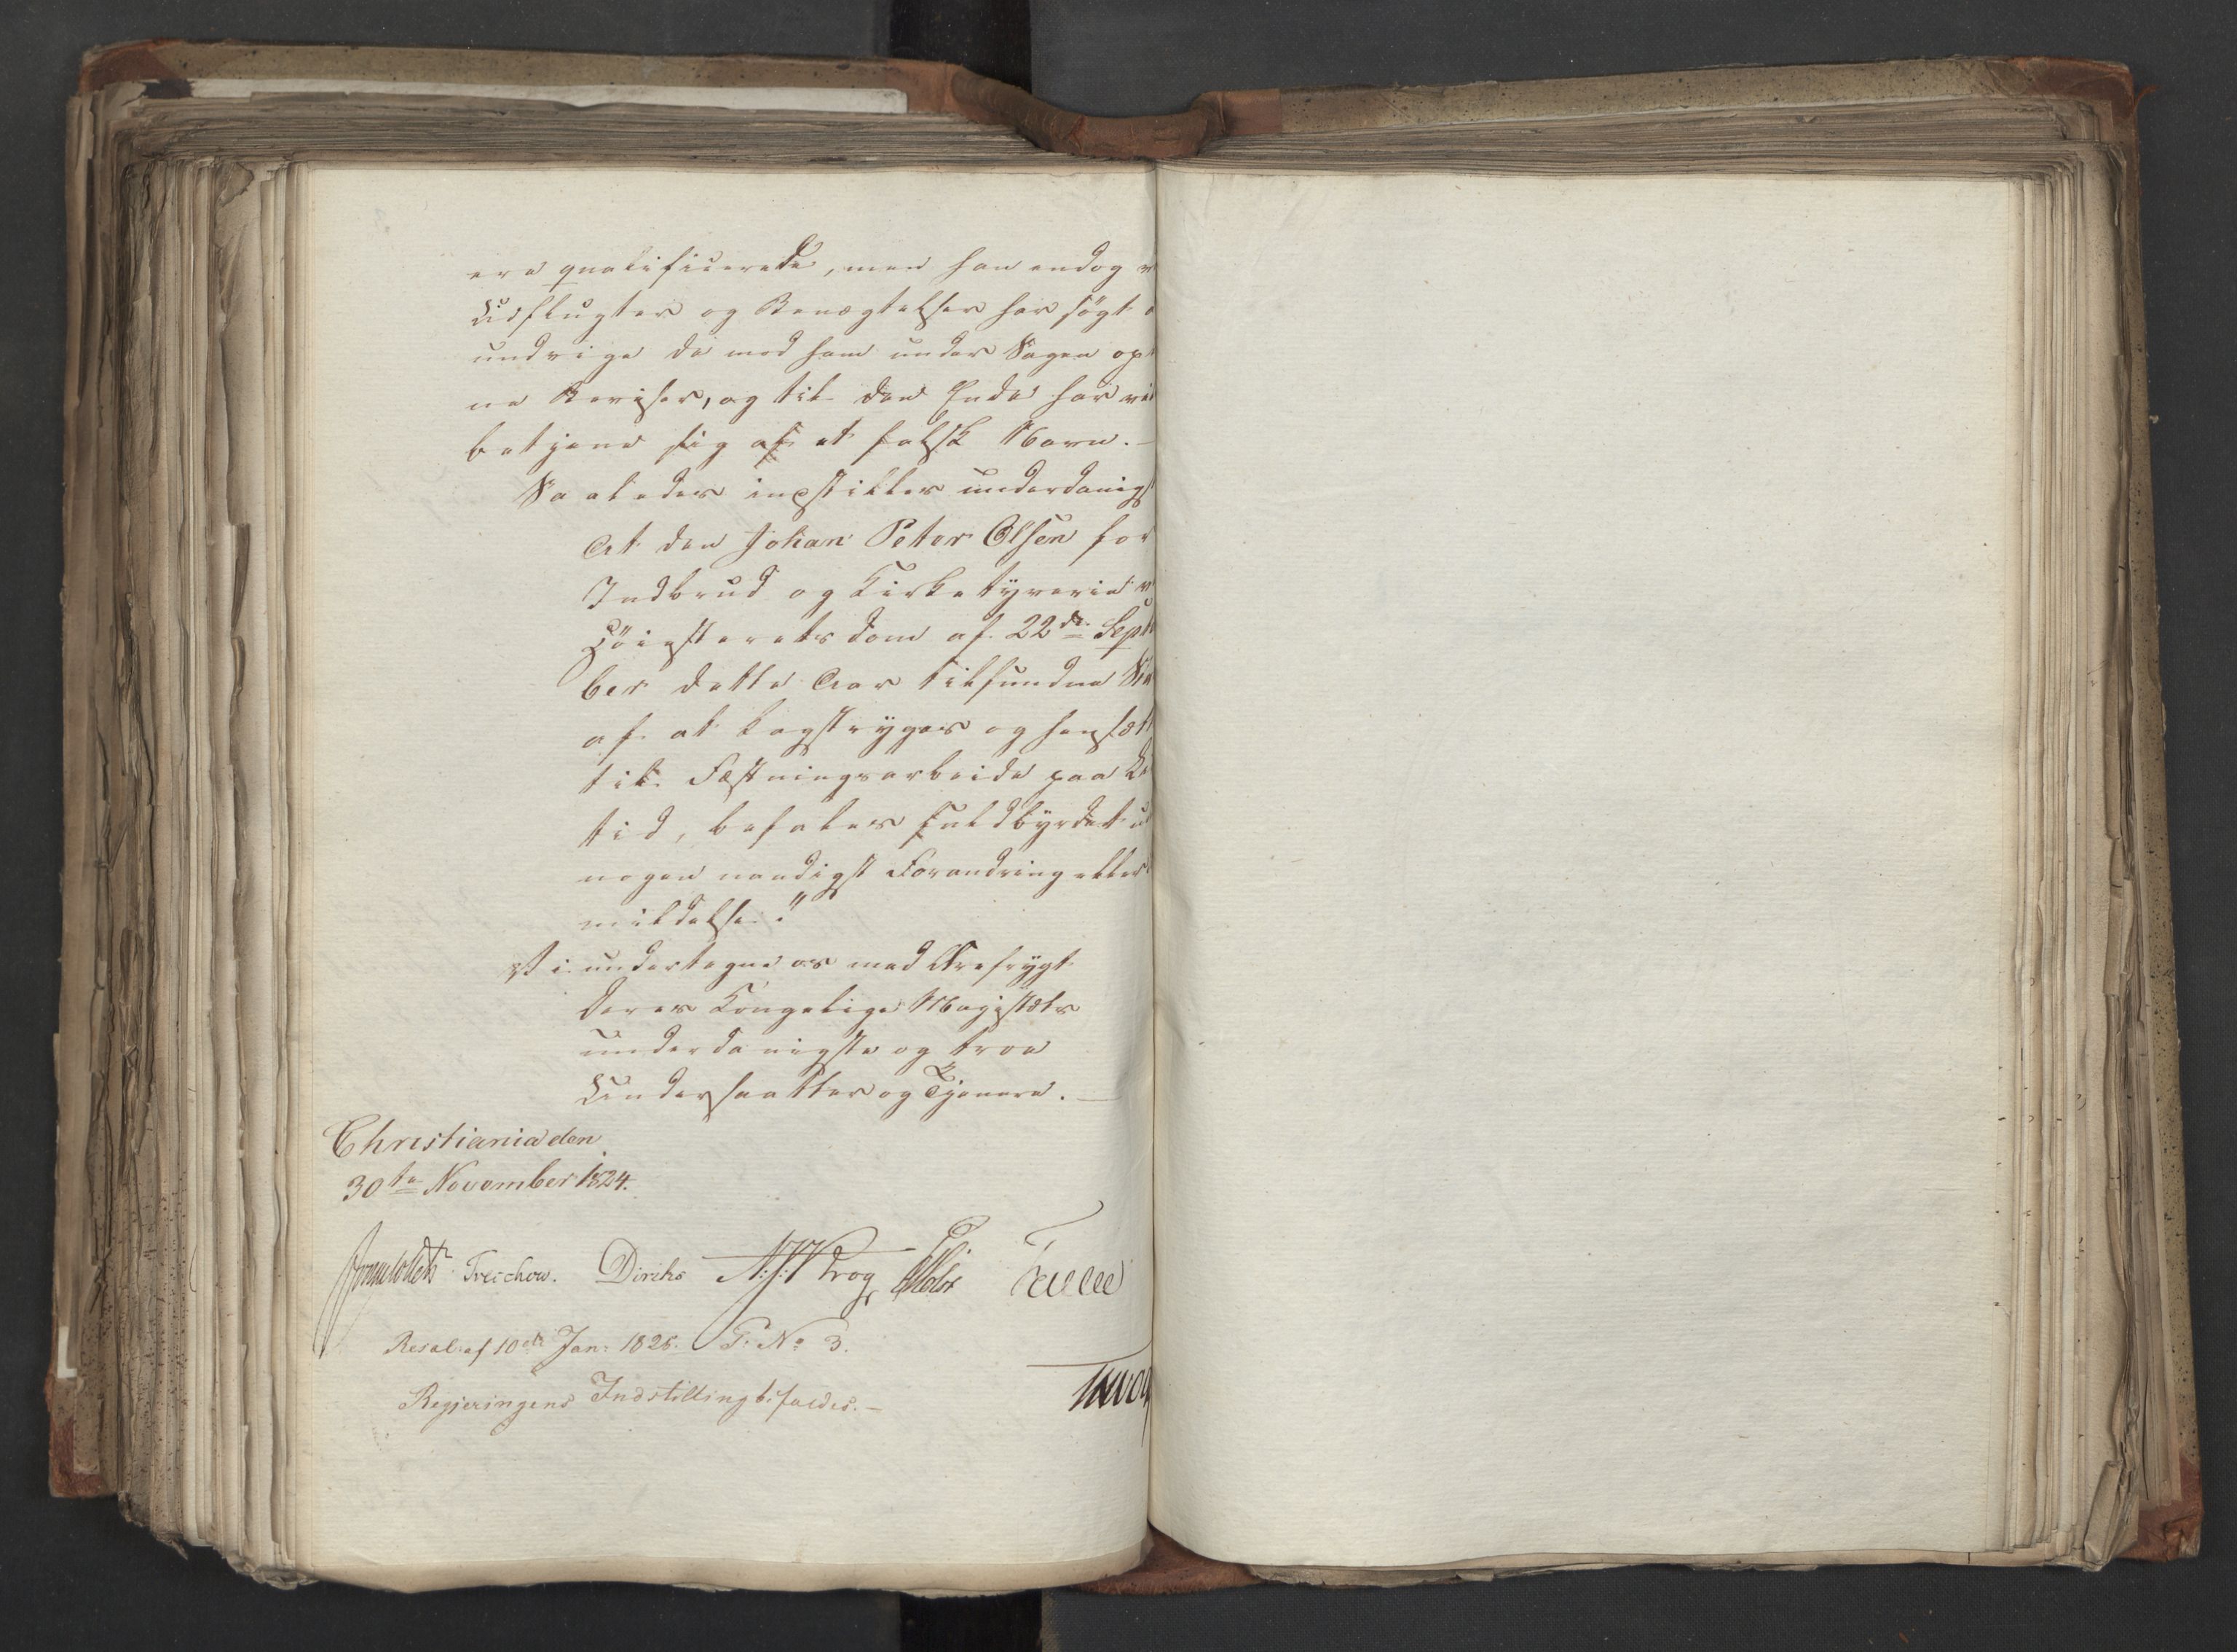 ere qvalificerede, men han endog v
Udflugter og Benægtelser har søgt a
undvige de mod ham under Sagen op
ne Beviser, og til den Ende har vi
betjene sig af et falsk Navn.—
Saaledes indstilles underdanigst
At den Johan Peter Olsen for
Indbrud og Kirketyverie v
Höiesterets Dom af 22de Sept
ber dette Aar tilfundne
af at kagstryges og hensætt
til Fæstningsarbeide paa
tid, befales fuldbyrdet u
nogen naadigst Forandring eller
mildelse."
Vi undertegne os med Ærefrygt
Deres Kongelige Majestæts
underdanigste og troe
Undersaatter og Tjenere.—
Christiania den
30te November 1824.
Sommerfeldt Treschow. Diriks Krog Motzfeldt
Resol. af 10de Jan: 1825. P. No 3.
Regjeringens Indstilling bifaldes.—